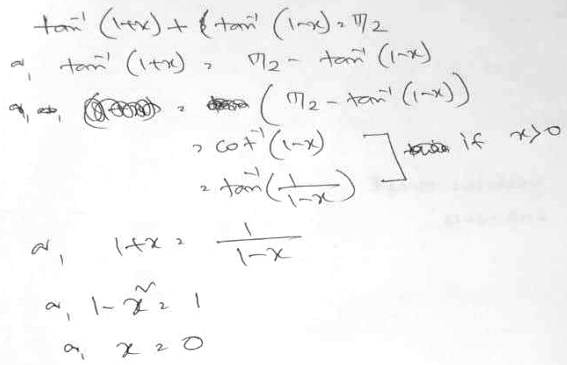 tan⁻¹ (1+x) + tan⁻¹ (1-x) = π/2
or, tan⁻¹ (1+x) = π/2 - tan⁻¹ (1-x)
or, = ( π/2 - tan⁻¹ (1-x))
= cot⁻¹ (1-x)
= tan⁻¹ (1/(1-x)) ] if x>0
or, 1+x = 1/(1-x)
or, 1-x² = 1
or, x = 0